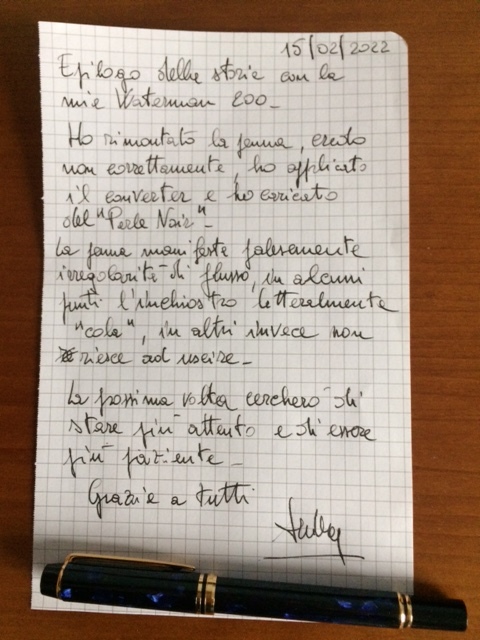 15/02/2022
Epilogo della storia con la
mia Waterman 200_
Ho rimontato la penna, credo
non correttamente, ho applicato
il converter e ho caricato
del "Perle Noir"_
La penna manifesta palesemente
irregolarità di flusso, in alcuni
punti l'inchiostro letteralmente
"cola", in altri invece non
riesce ad uscire_
La prossima volta cercherò di
stare più attento e di essere
più paziente_
Grazie a tutti